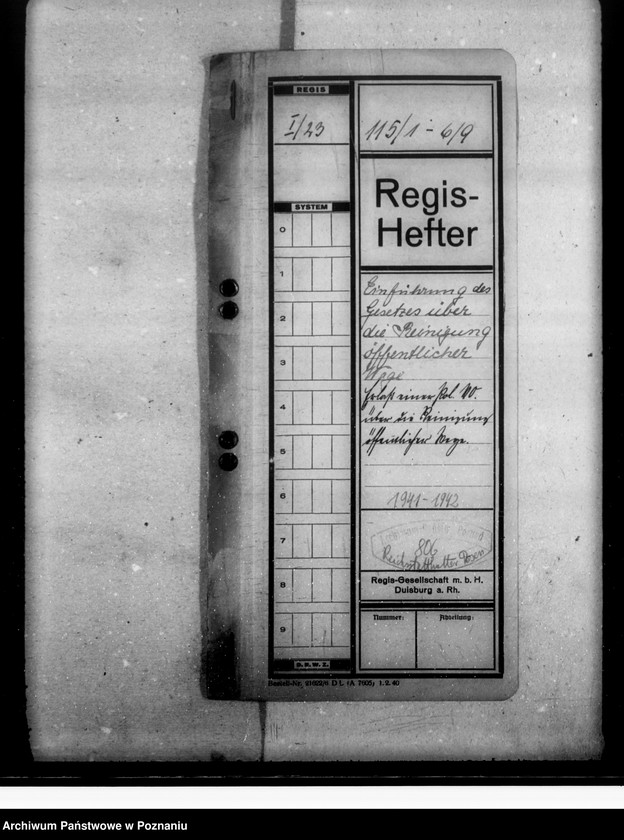 REGIS
I/23
115/1 - 6/9
SYSTEM
Regis-
Hefter
0
1
2
3
4
5
6
7
8
9
Einführung des
Gesetzes über
die Reinigung
öffentlicher
Wege
Erlaß einer Pol. VO.
über die Reinigung
öffentlicher Wege.
1941-1942
806
Reichsstatthalter Posen
Regis-Gesellschaft m. b. H.
Duisburg a. Rh.
Nummer:
Abteilung:
D.R.W.Z.
Bestell-Nr. 21022/6 D L (A 7605) 1. 2. 40
Archiwum Państwowe w Poznaniu